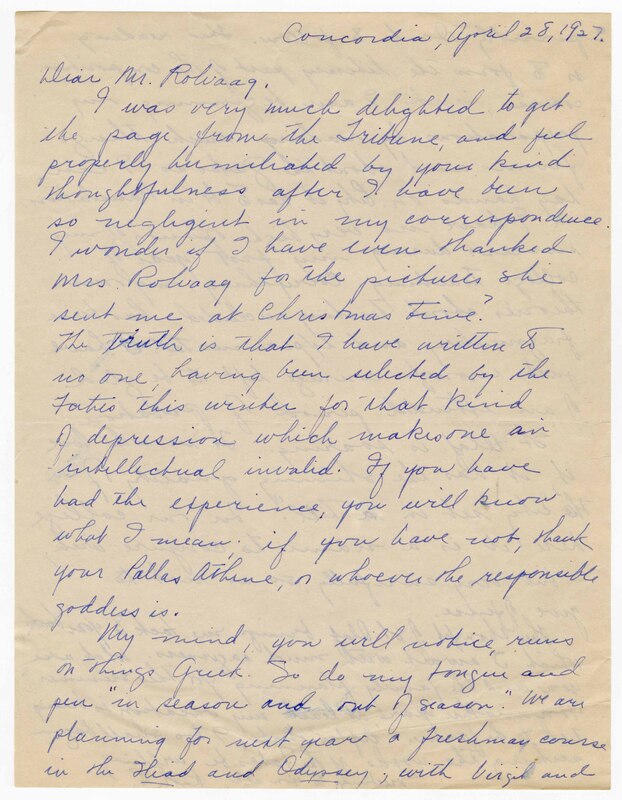 Concordia, April 28, 1927.
Dear Mr. Rolvaag.
I was very much delighted to get
the page from the Tribune, and feel
properly humiliated by your kind
thoughtfulness after I have been
so negligent in my correspondence.
I wonder if I have even thanked
Mrs. Rolvaag for the pictures she
sent me at Christmas time?
The truth is that I have written to
no one, having been selected by the
Fates this winter for that kind
of depression which makes one an
intellectual invalid. If you have
had the experience, you will know
what I mean; if you have not, thank
your Pallas Athene, or whoever the responsible
goddess is.
My mind, you will notice, runs
on things Greek. So do my tongue and
pen "in season and out of season." We are
planning for next year a freshman course
in the Iliad and Odyssey, with Virgil and